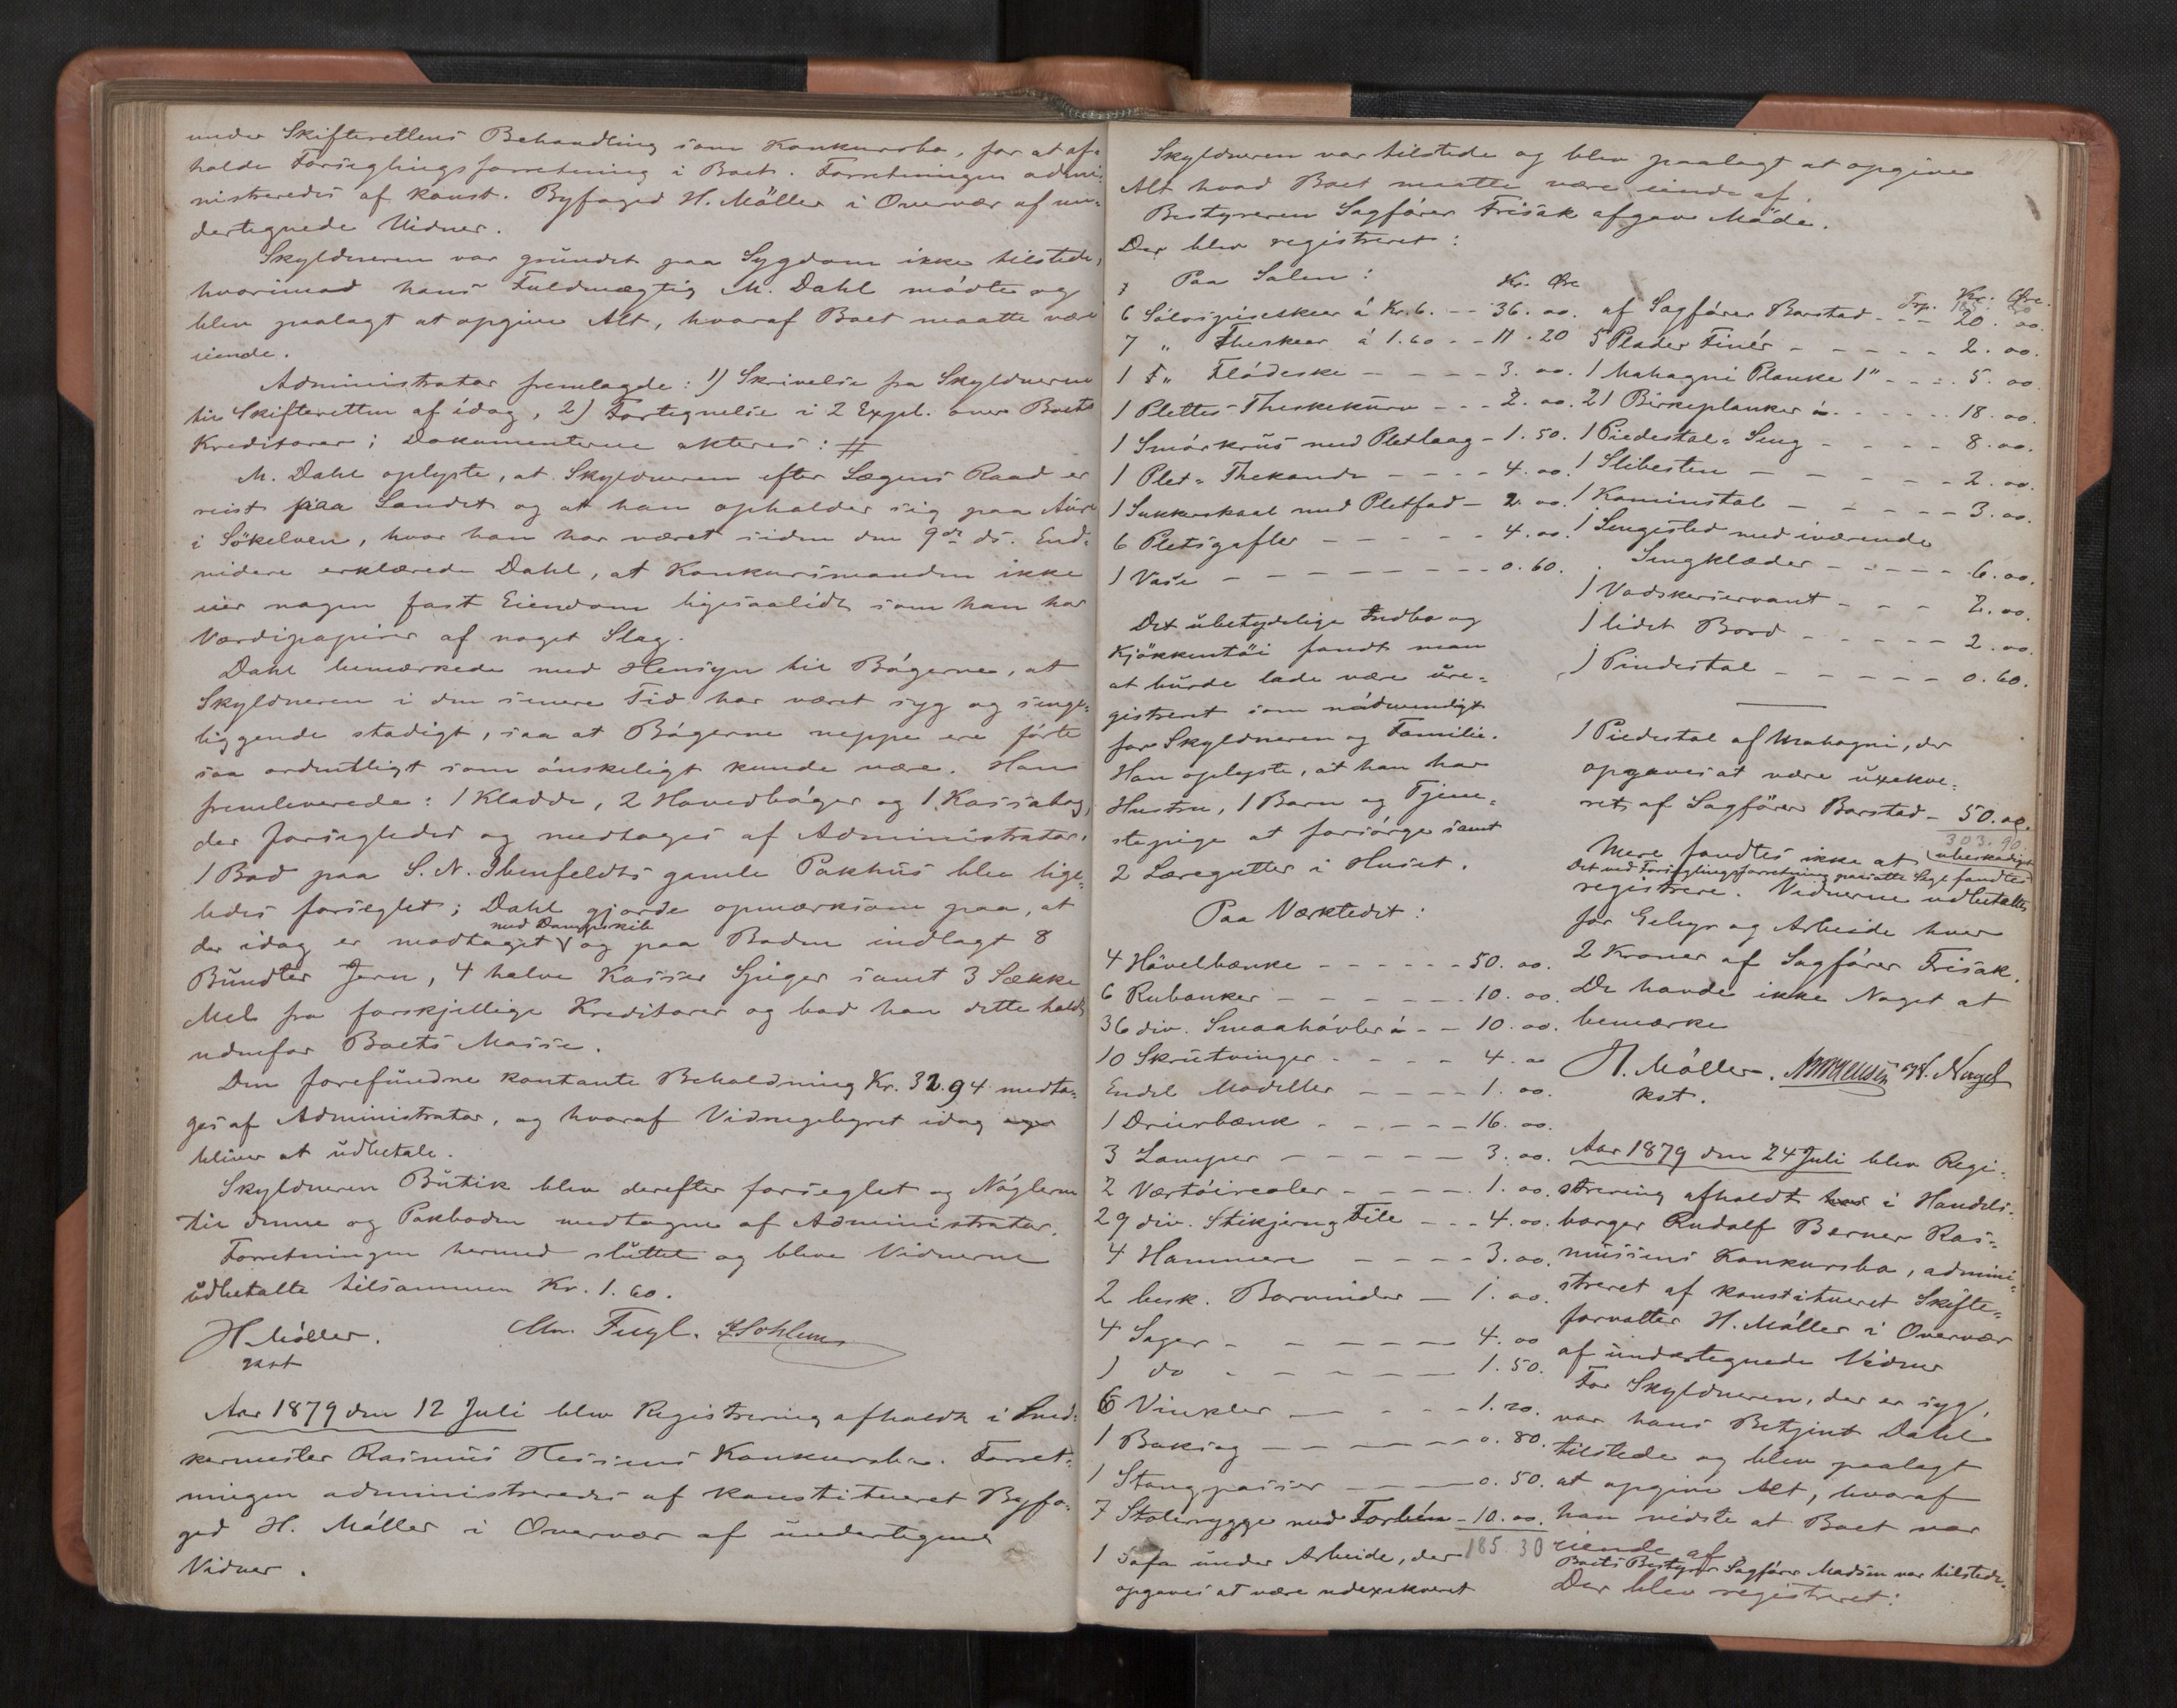 under Skifterettens Behandling som Konkursbo, for at af-
holde Forseglingsforretning i Boet. Forretningen admi-
nistreredes af konst. Byfoged H. Möller i Overvær af un-
dertegnede Vidner.
Skyldneren var grundet paa Sygdom ikke tilstede,
hvorimod hans Fuldmægtig M. Dahl mødte og
blev paalagt at opgive Alt, hvoraf Boet maatte være
eiende.
Administrator fremlagde: 1) Skrivelse fra Skyldneren
til Skifteretten af idag, 2) Fortegnelse i 2 Expl. over Boets
Kreditorer; Dokumenterne akteres: #
M. Dahl oplyste, at Skyldneren efter Lægens Raad er
reist paa Landet og at han opholder sig paa Aure
i Sökelven, hvor han har været siden den 9de ds. End-
videre erklærede Dahl, at Konkursmanden ikke
eier nogen fast Eiendom ligesaalidt som han har
Værdipapirer af noget Slag.
Dahl bemærkede med Hensyn til Bøgerne, at
Skyldneren i den senere Tid har været syg og senge-
liggende stadigt, saa at Bøgerne neppe ere førte
saa ordentligt som ønskeligt kunde være. Han
fremleverede: 1 Kladde, 2 Hovedbøger og 1 Kassabog,
der forsegledes og medtoges af Administrator.
1 Bod paa S. N. Ibenfeldts gamle Pakhus blev lige-
ledes forseglet; Dahl gjorde opmærksom paa, at
med Dampskib
der idag er modtaget V og paa Boden indlagt 8
Bundter Jern, 4 halve Kasser Spiger samt 3 Sække
Mel fra forskjellige Kreditorer og bad han dette holdt
udenfor Boets Masse.
Den forefundne kontante Beholdning Kr. 32.94 medto-
ges af Administrator, og hvoraf Vidnegebyret idag
bliver at udbetale.
Skyldneren Butik blev derefter forseglet og Nøglerne
til denne og Pakboden medtagne af Administrator.
Forretningen hermed sluttet og bleve Vidnerne
udbetalte tilsammen Kr. 1.60.
H. Möller. Chr. Fugl.
kst
Aar 1879 den 12 Juli blev Registrering afholdt i Sned-
kermester Rasmus Hessens Konkursbo. Forret-
ningen administreredes af konstitueret Byfo-
ged H. Möller i Overvær af undertegnede
Vidner.
Skyldneren var tilstede og blev paalagt at opgive
Alt hvad Boet maatte være eiende af.
Bestyreren Sagfører Frisak afgav Møde.
Der blev registreret:
Paa Salen: Kr. Øre
6 Sølvspiseskeer á Kr. 6. - - 36. 00.
7 " Theskeer á 1.60 - - 11. 20
1 " Flødeske - - - - 3. 00.
1 Plettes Theskekurv - - - 2. 00.
1 Smørkrus med Pletlaag - 1. 50.
1 Plet- Thekande - - - - 4. 00.
1 Sukkerskaal med Pletfad - 2. 00.
6 Pletsgafler - - - - - 4. 00.
1 Vase - - - - - - - - 0. 60.
Det ubetydelige Indbo og
Kjøkkentöi fandt man
at burde lade være ure-
gistreret som nødvendigt
for Skyldneren og Familie.
Han oplyste, at han har
Hustru, 1 Barn og Tjene-
stepige at forsørge samt
2 Læregutter i Huset.
Paa Værktedet:
4 Hövelbænke - - - - - - 50. 00.
6 Rubanker - - - - - - 10. 00.
36 div. Smaahøvler á - - 10. 00.
10 Skrutvinger - - - - 4. 00
Endel Modeller - - - - 1. 00.
1 Dreierbænk - - - - - 16. 00.
3 Lamper - - - - - - 3. 00.
2 Værtøirealer - - - - 1. 00.
29 div. Stikjern og File - - - 4. 00.
4 Hammere - - - - 3. 00.
2 besk. Borvinder - 1. 00.
4 Sager - - - - - - 4. 00
1 do - - - - - - 1. 50.
6 Vinkler - - - - 1. 20.
1 Baksag - - - - - 0. 80.
1 Stangpasser - - - 0. 50.
7 Stolerygge med Forbén - 10. 00.
185. 30
1 Sofa under Arbeide, der
opgaves at være udexekveret
Trp. Kr. Øre.
185. 30
af Sagfører Barstad - - - 20. 00.
5 Plader Finér - - - - - 2. 00.
1 Mahagni Planke 1" - - - 5. 00
21 Birkeplanker á - - - - 18. 00.
1 Piedestal- Seng - - - - 8. 00.
1 Slibesten - - - - - 2. 00.
1 Kaminstol - - - - - 3. 00.
1 Sengested med iværende
Sengklæder - - - - - 6. 00.
1 Vadskerservant - - - 2. 00.
1 lidet Bord - - - - - 2. 00.
1 Pindestol - - - - - 0. 60.
1 Piedestal af Mahagni, der
opgaves at være uxekve-
ret af Sagfører Barstad - 50. 00.
303. 90
Mere fandtes ikke at
Det ved Forseglingsforretning paasatte Segl fandtes ubeskadiget
registrere. Vidnerne udbetaltes
for Gebyr og Arbeide hver
2 Kroner af Sagfører Frisak.
De havde ikke Noget at
bemærke
H. Möller. N. Nagel
kst.
Aar 1879 den 24 Juli blev Regi-
strering afholdt i Handels-
borger Rudolf Berner Ras-
mussens Konkursbo, admini-
streret af konstitueret Skifte-
forvalter H. Møller i Overvær
af undertegnede Vidner
For Skyldneren, der er syg,
var hans Betjent Dahl
tilstede og blev paalagt
at opgive Alt, hvoraf
han vidste at Boet var
eiende af
Boets Bestyrer Sagfører Madsen var tilstede.
Der blev registreret: